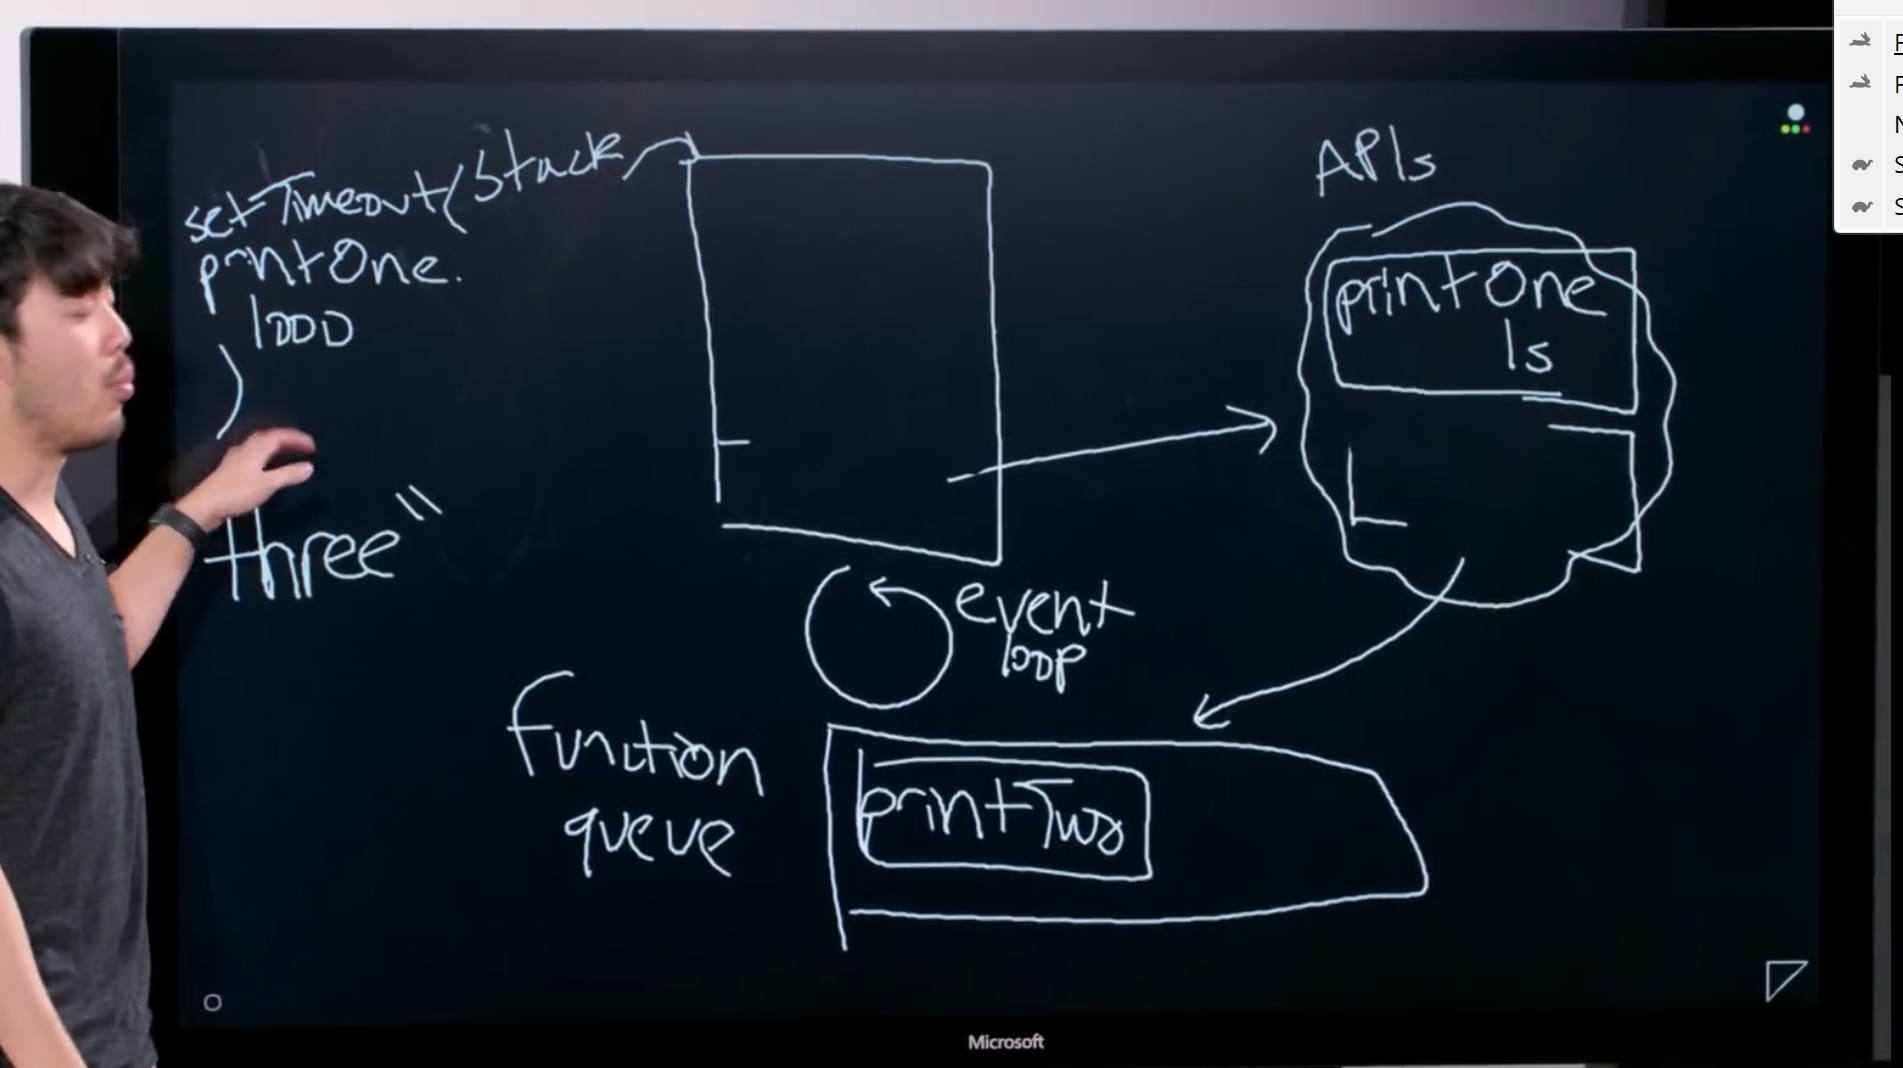 setTimeout(
printOne.
1000
)
Stack
three"
APIs
printOne
1s
event
loop
function
queue
printTwo
Microsoft